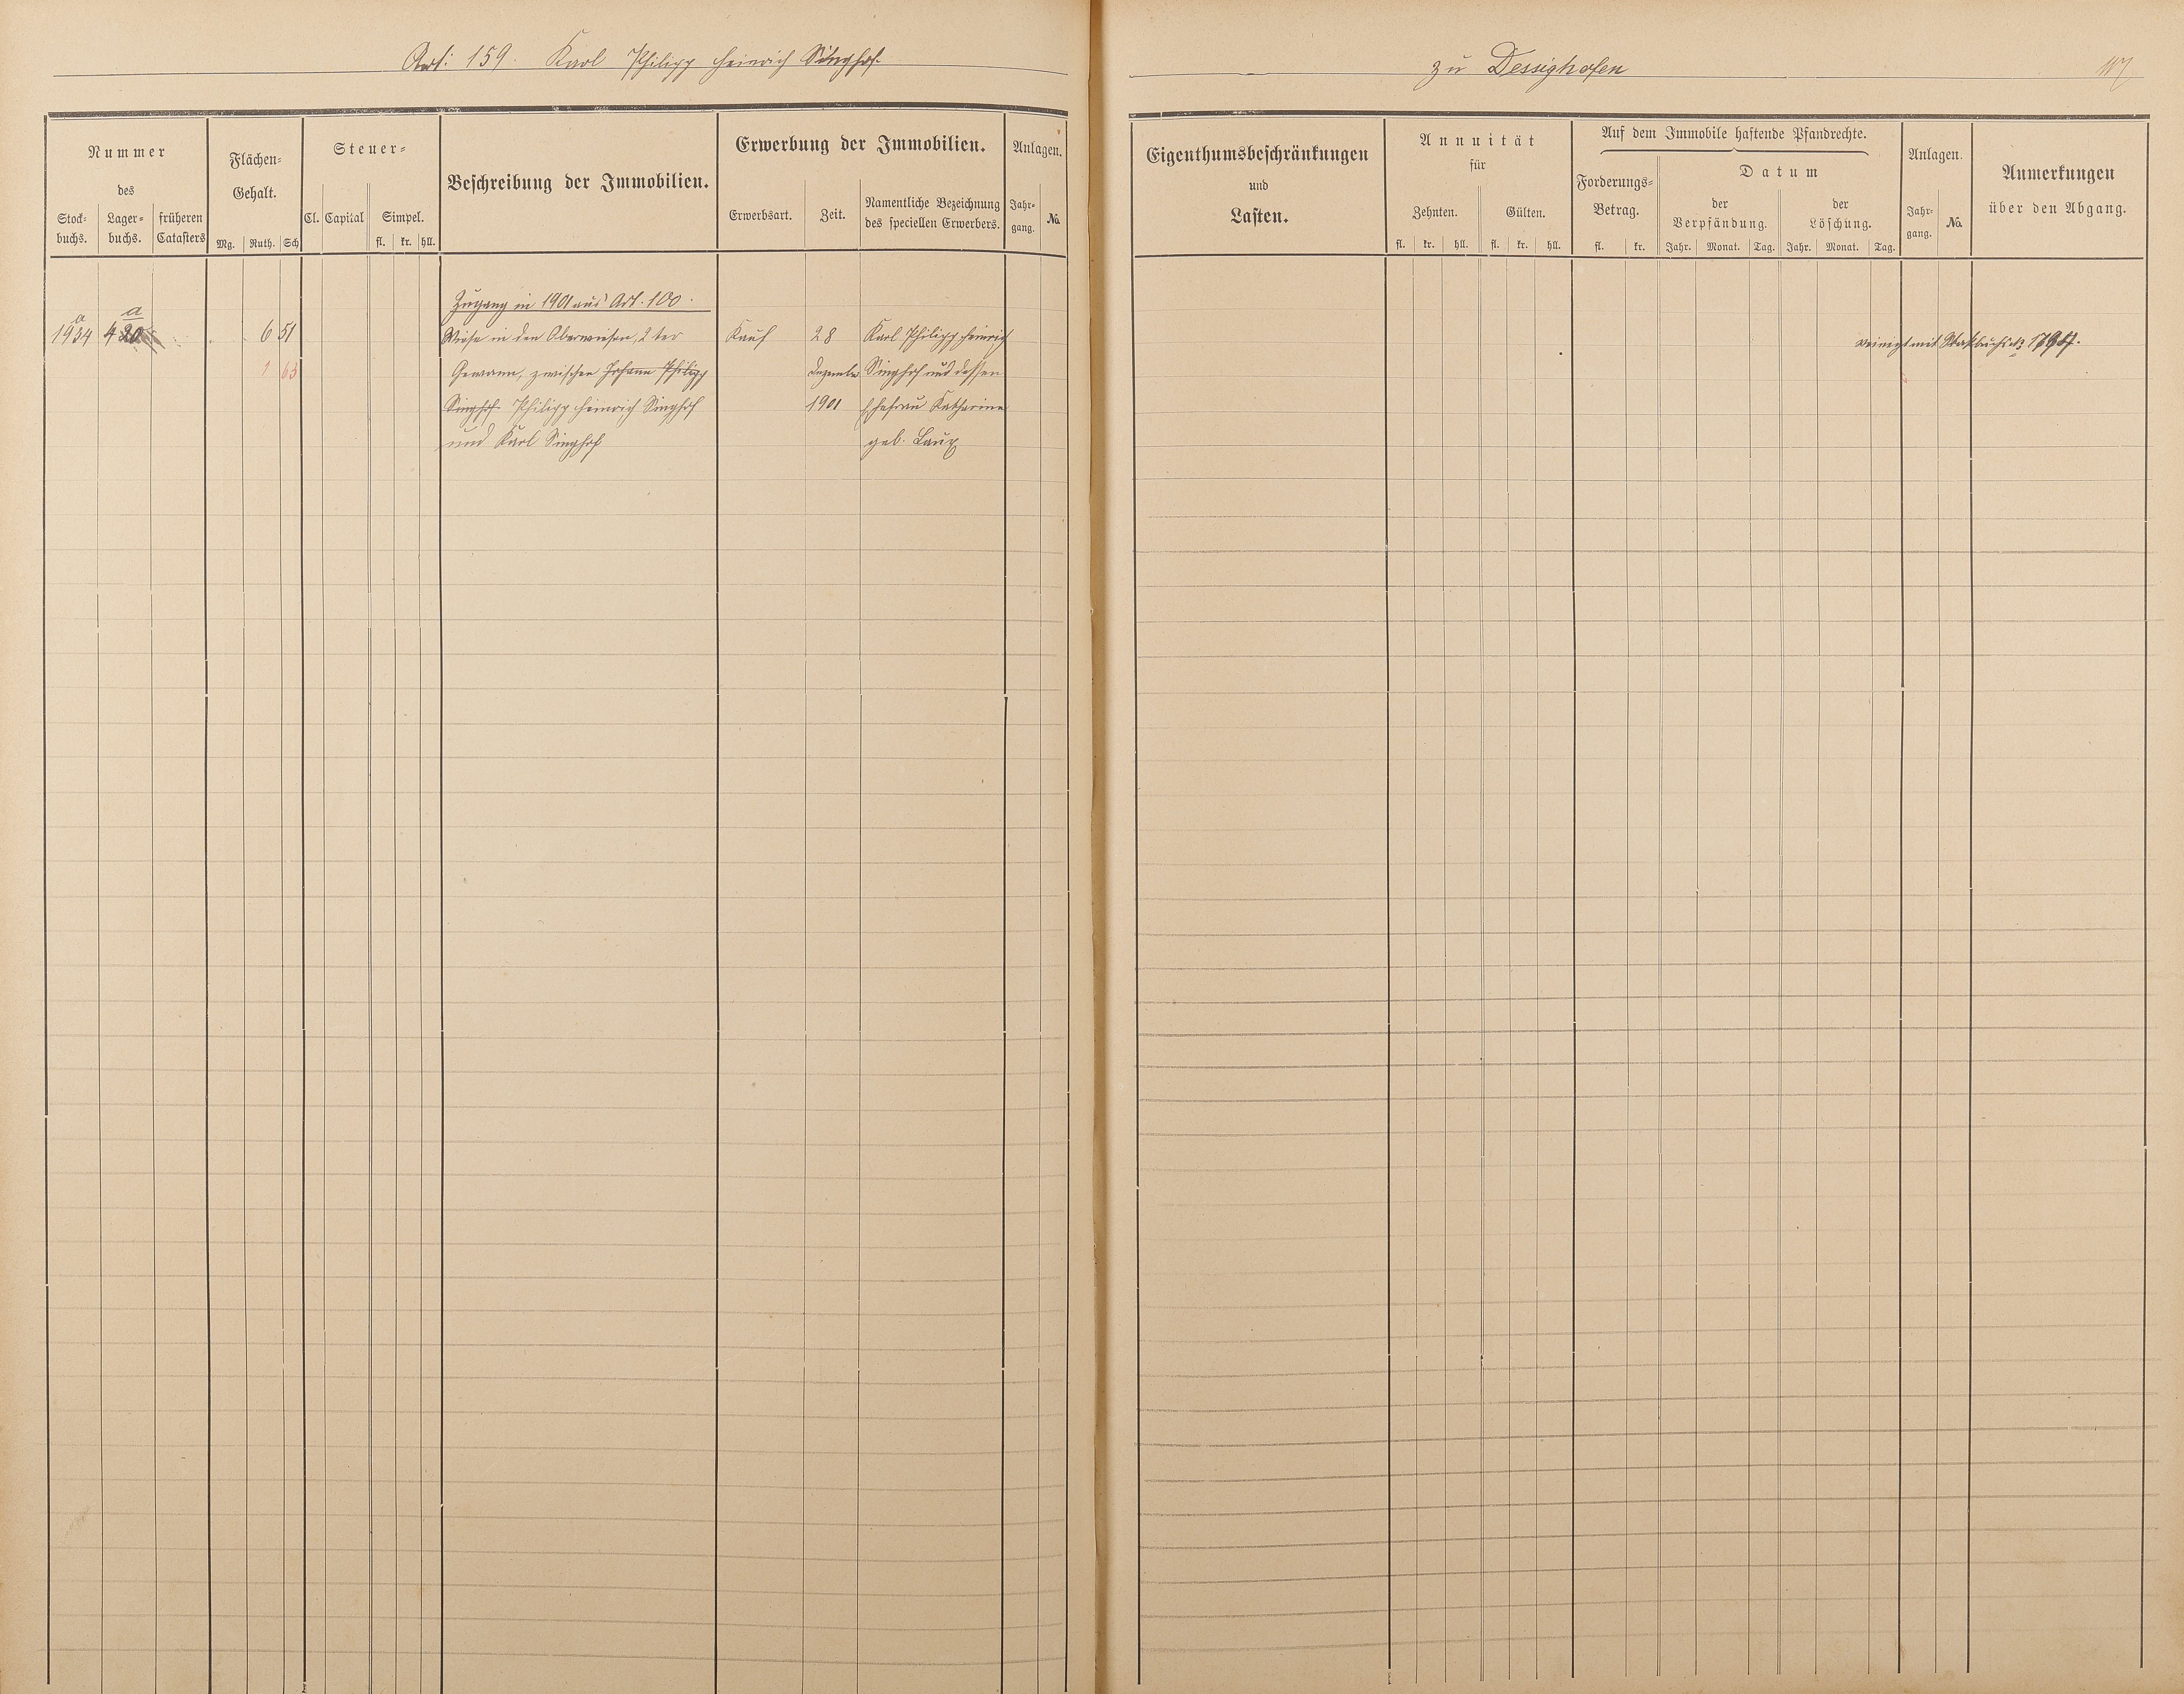 Art: 159. Karl Philipp Heinrich Singhof.
Nummer
des
Stock-
buchs.
Lager-
buchs.
früheren
Catasters
Flächen-
Gehalt.
Mg. Ruth. Sch
Steuer-
Cl. Capital Simpel.
fl. kr. hll.
Beschreibung der Immobilien.
Erwerbung der Immobilien.
Erwerbsart. Zeit. Namentliche Bezeichnung
des speciellen Erwerbers.
Anlagen.
Jahr-
gang.
No.
Zugang in 1901 aus Art. 100.
a
a
1934 6 51 Wiese in den Oberwiesen, 2 ter Kauf 28 Karl Philipp Heinrich
63 Gewann, zwischen Johann Philipp Dezember Singhof und dessen
Singhof Philipp Heinrich Singhof 1901 Ehefrau Katharine
und Karl Singhof geb. Laux
zu Dessighofen 117
Eigenthumsbeschränkungen
und
Lasten.
Annuität
für
Zehnten. Gülten.
fl. kr. hll. fl. kr. hll.
Auf dem Immobile haftende Pfandrechte.
Forderungs-
Betrag.
fl. kr.
Datum
der
Verpfändung.
Jahr. Monat. Tag.
der
Löschung.
Jahr. Monat. Tag.
Anlagen.
Jahr-
gang.
No.
Anmerkungen
über den Abgang.
vereinigt mit Stockbuchs